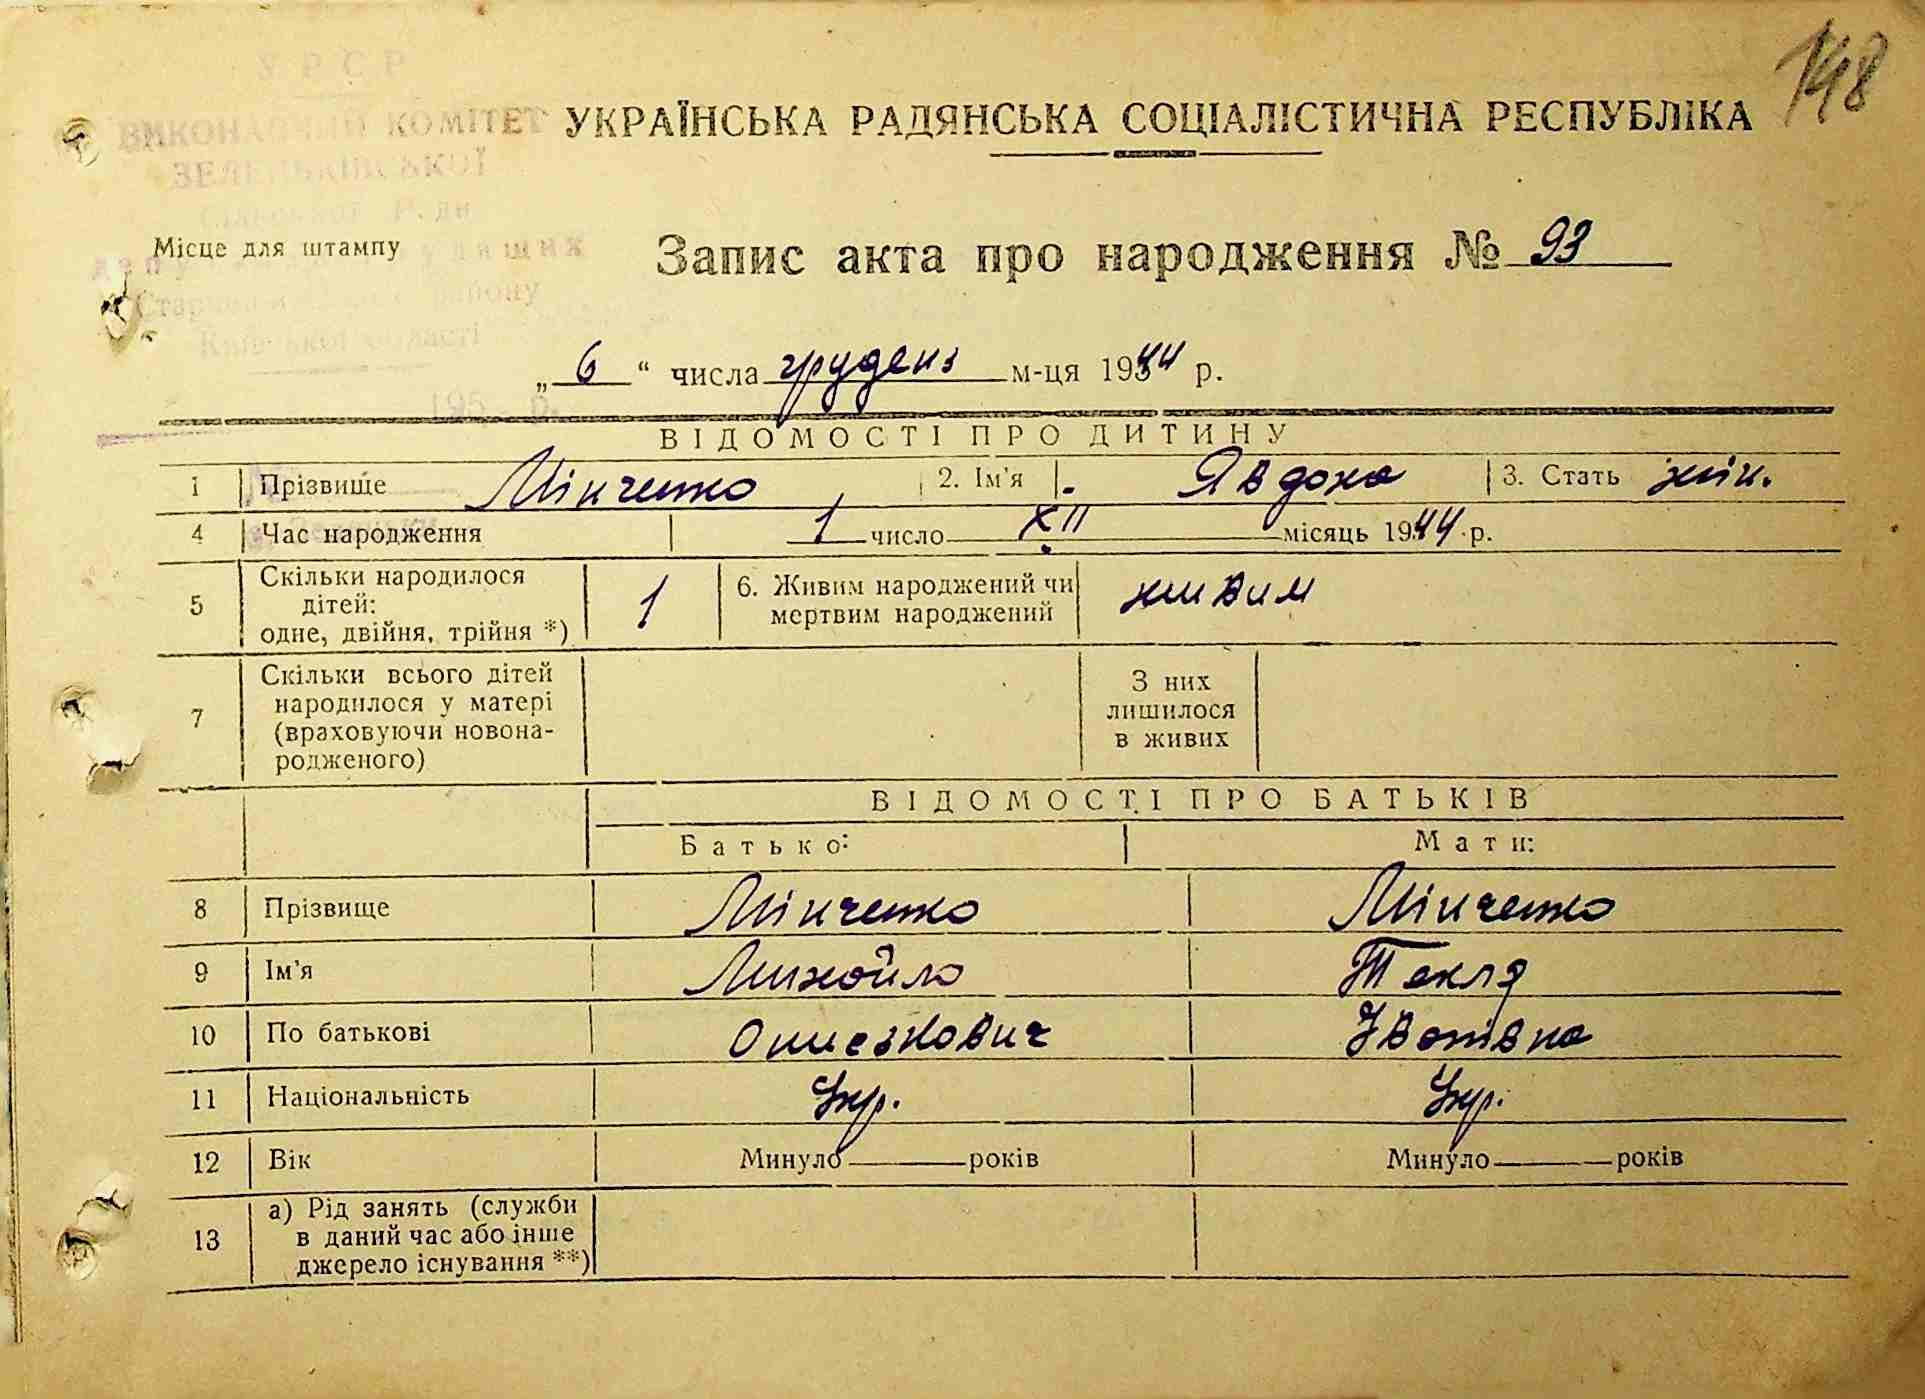 148
УРСР
ВИКОНАВЧИЙ КОМІТЕТ
ЗЕЛЕНЬКІВСЬКОЇ
УКРАЇНСЬКА РАДЯНСЬКА СОЦІАЛІСТИЧНА РЕСПУБЛІКА
Місце для штампу
Київської області
195 р.
Запис акта про народження № 93
„6“ числа грудень м-ця 1944 р.
ВІДОМОСТІ ПРО ДИТИНУ
1 Прізвище Мінченко 2. Ім'я Явдоха 3. Стать жін.
4 Час народження 1 число XII місяць 1944 р.
5 Скільки народилося
дітей:
одне, двійня, трійня *) 1
6. Живим народжений чи
мертвим народжений живим
7 Скільки всього дітей
народилося у матері
(враховуючи новона-
родженого)
З них
лишилося
в живих
ВІДОМОСТІ ПРО БАТЬКІВ
Батько: Мати:
8 Прізвище Мінченко Мінченко
9 Ім'я Михойло Текля
10 По батькові
11 Національність Укр. Укр.
12 Вік Минуло років Минуло років
13 а) Рід занять (служби
в даний час або інше
джерело існування **)